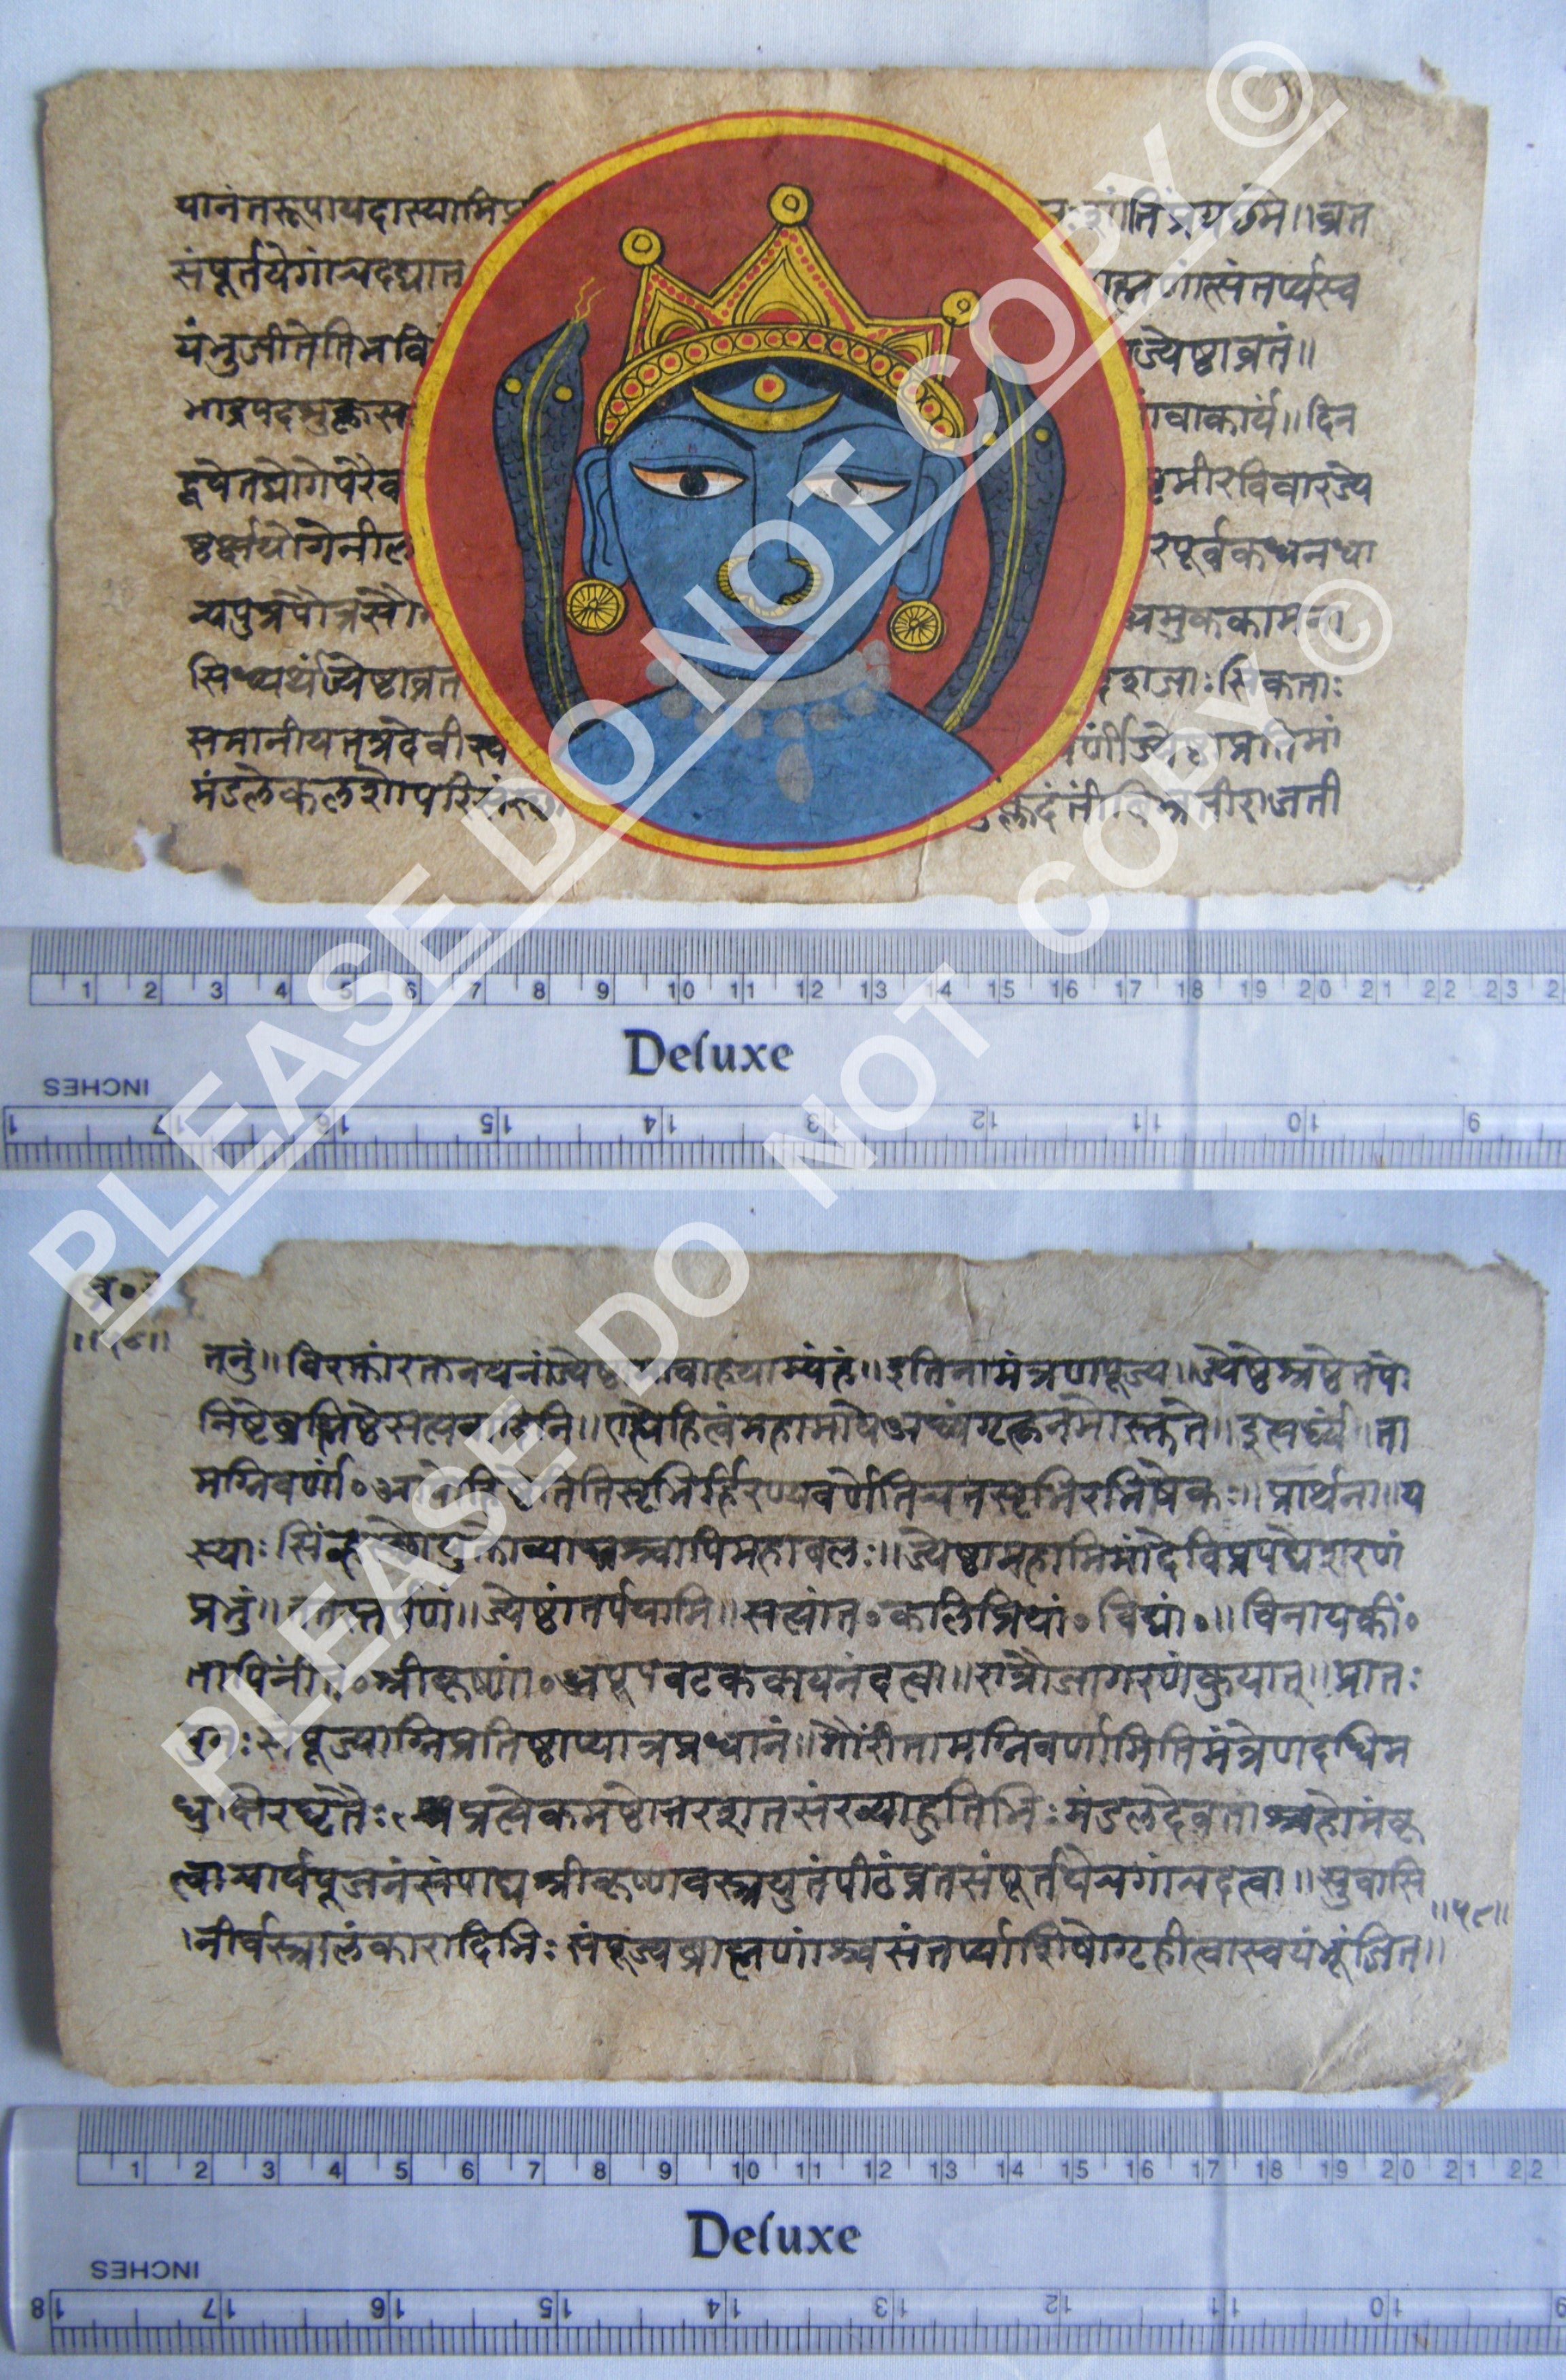 यानंतरूपायदास्यामि
शांतिंप्रयछमे॥व्रत
संपूर्तयेगांचदद्यात
ह्मणांत्संतर्प्यस्व
यंभुजीतेति
ज्येष्ठाव्रतं॥
भाद्रपदशुक्ल
वाकार्यं॥दिन
द्वयेतद्योगेपरैव
मीरविवारज्ये
ष्ठर्क्षयोगेनील
रपूर्वकधनधा
न्यपुत्रपौत्रसौ
मुककामना
सिध्यर्थंज्येष्ठाव्रत
सिकताः
समानीयतत्रदेवीस्य
ज्येष्ठाप्रतिमां
मंडलेकलशोपरि
नीराजती
1 2 3 4 5 6 7 8 9 10 11 12 13 14 15 16 17 18 19 20 21 22 23
Deluxe
INCHES
17 16 15 14 13 12 11 10 9
तनुं॥विरक्तांरक्तनयनांज्येष्ठामावाहयाम्यहं॥इतिनाममंत्रेणपूज्य॥ज्येष्ठेश्रेष्ठेतपो
निष्टेब्रह्मिष्ठेसत्यवादिनि॥एह्येहित्वंमहाभागेअर्घ्यंगृह्णनमोस्तुते॥इत्यर्घ्यं॥ता
मग्निवर्णां॰आपोहिष्ठेतितिसृभिर्हिरण्यवर्णेतिचतसृभिरभिषेकः॥प्रार्थना॥य
स्याःसिंहोरथेयुक्तोव्याघ्रश्चापिमहाबलः॥ज्येष्ठामहामिमांदेविप्रपद्येशरणं
प्रभुं॥ततस्तर्पणं॥ज्येष्ठांतर्पयामि॥सत्यांत॰कलिप्रियां॰विद्यां॰॥विनायकीं॰
तापिनींत॰श्रीकृष्णां॰अपूपवटकवायनंदत्वा॥रात्रौजागरणंकुर्यात्॥प्रातः
पुनःसंपूज्याग्निप्रतिष्ठाप्यात्रप्रधानं॥गौरींतामग्निवर्णामितिमंत्रेणदधिम
धुक्षीरघृतैः प्रत्येकमष्टोत्तरशतसंख्याहुतिभिःमंडलदेवताश्चहोमंकृ
त्वाचार्यपूजनंसंपाद्यश्रीकृष्णवस्त्रयुतंपीठंव्रतसंपूर्तयेचगांचदत्वा॥सुवासि
नीर्वस्त्रालंकारादिभिःसंपूज्यब्राह्मणांश्चसंतर्प्याशिषोगृहीत्वास्वयंभुंजित॥
॥५८॥
1 2 3 4 5 6 7 8 9 10 11 12 13 14 15 16 17 18 19 20 21 22
Deluxe
INCHES
18 17 16 15 14 13 12 11 10 9
PLEASE DO NOT COPY ©
PLEASE DO NOT COPY ©